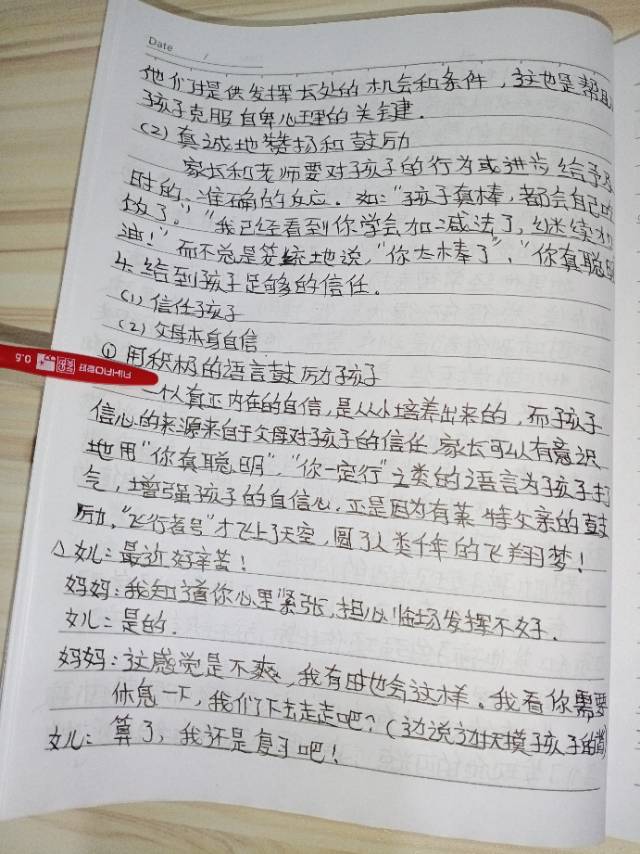 Date /
他们提供发挥长处的机会和条件，这也是帮助
孩子克服自卑心理的关键.
(2) 真诚地赞扬和鼓励
家长和老师要对孩子的行为或进步给予及
时的、准确的反应. 如:"孩子真棒,都会自己
做了。""我已经看到你学会加减法了,继续加
油!"而不总是笼统地说,"你太棒了"、"你真聪明
4. 给到孩子足够的信任.
(1) 信任孩子
(2) 父母本身自信
① 用积极的语言鼓励孩子
一个人真正内在的自信,是从小培养出来的,而孩子
信心的来源来自于父母对孩子的信任,家长可以有意识
地用"你真聪明""你一定行"之类的语言为孩子打
气,增强孩子的自信心.正是因为有莱特父亲的鼓
励,"飞行者号"才飞上了天空,圆了人类千年的飞翔梦!
△女儿:最近好辛苦!
妈妈:我知道你心里紧张,担心临场发挥不好.
女儿:是的.
妈妈:这感觉是不爽,我有时也会这样。我看你需要
休息一下,我们下去走走吧?(边说边抚摸孩子的
女儿:算了,我还是复习吧!
AIHAO爱好 0.5